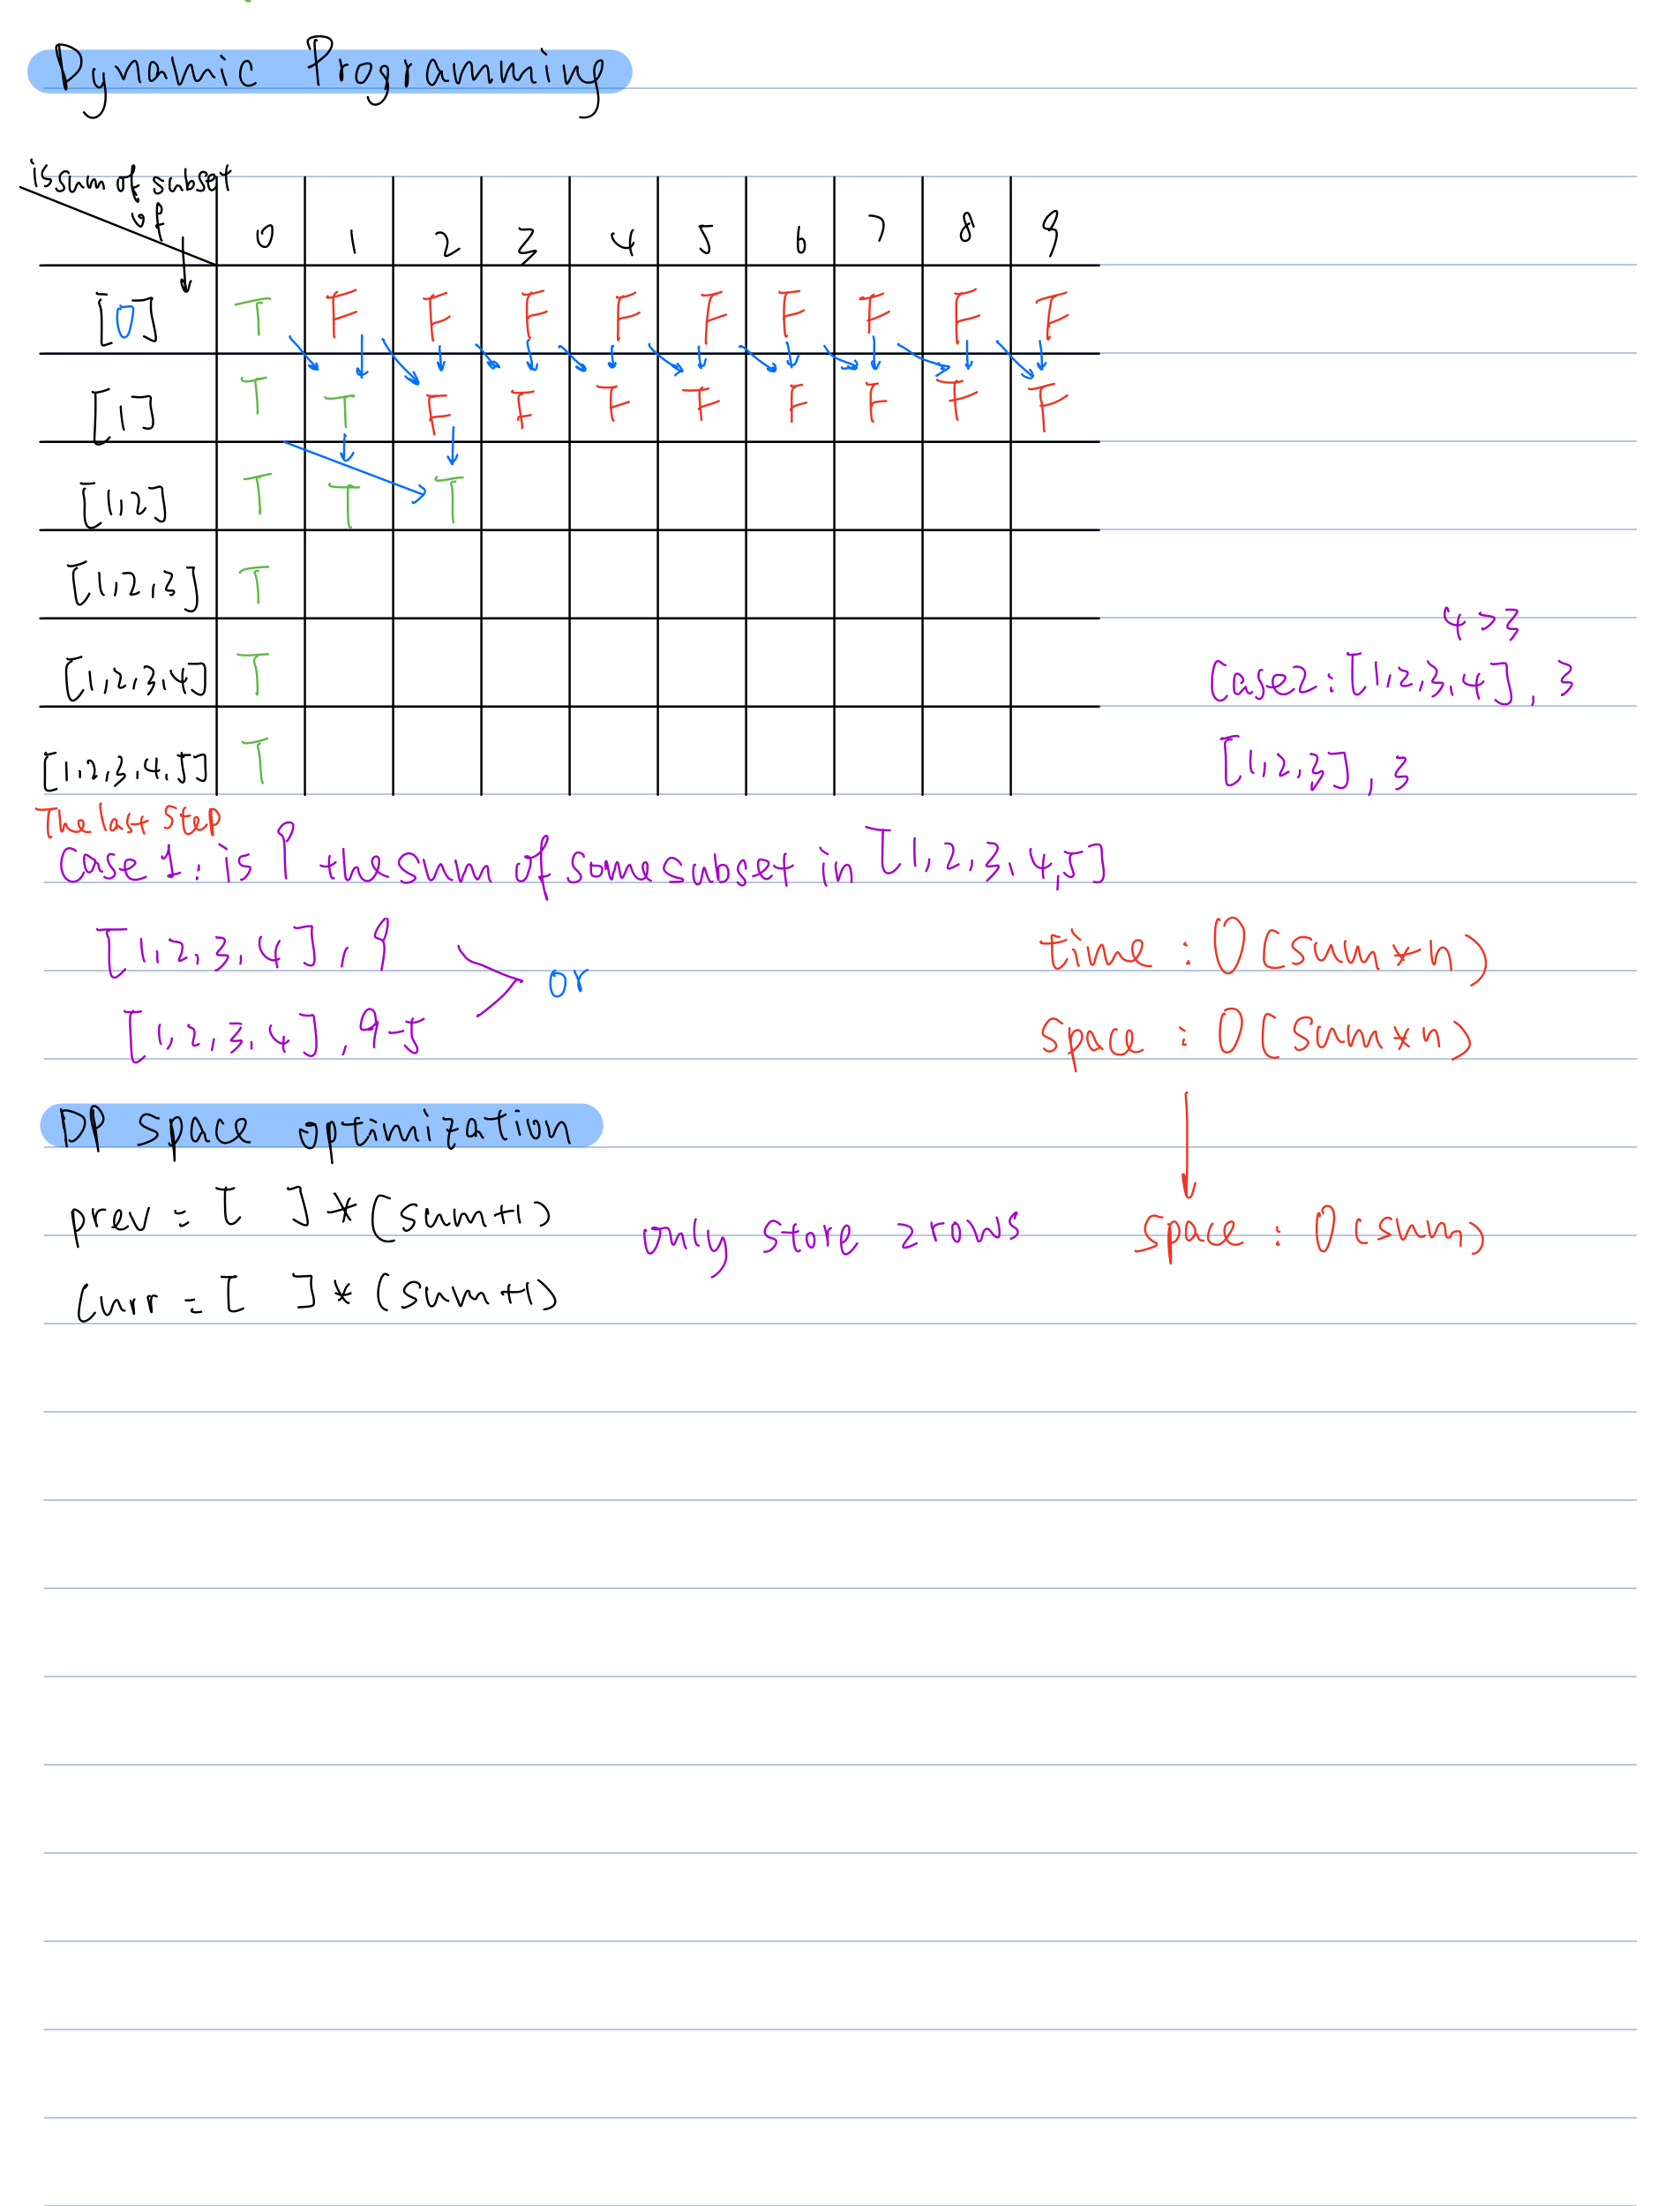 Dynamic Programming
is sum of subset
of
0 1 2 3 4 5 6 7 8 9
[0] T F F F F F F F F F
[1] T T F F F F F F F F
[1,2] T T T
[1,2,3] T
[1,2,3,4] T
[1,2,3,4,5] T
4>3
Case2: [1,2,3,4], 3
[1,2,3], 3
The last step
Case 1: is 9 the sum of some subset in [1,2,3,4,5]
[1,2,3,4], 9
or
[1,2,3,4], 9-5
time: O(sum*n)
space: O(sum*n)
DP space optimization
prev = [ ]*(sum+1)
curr = [ ]*(sum+1)
only store 2 rows
space: O(sum)